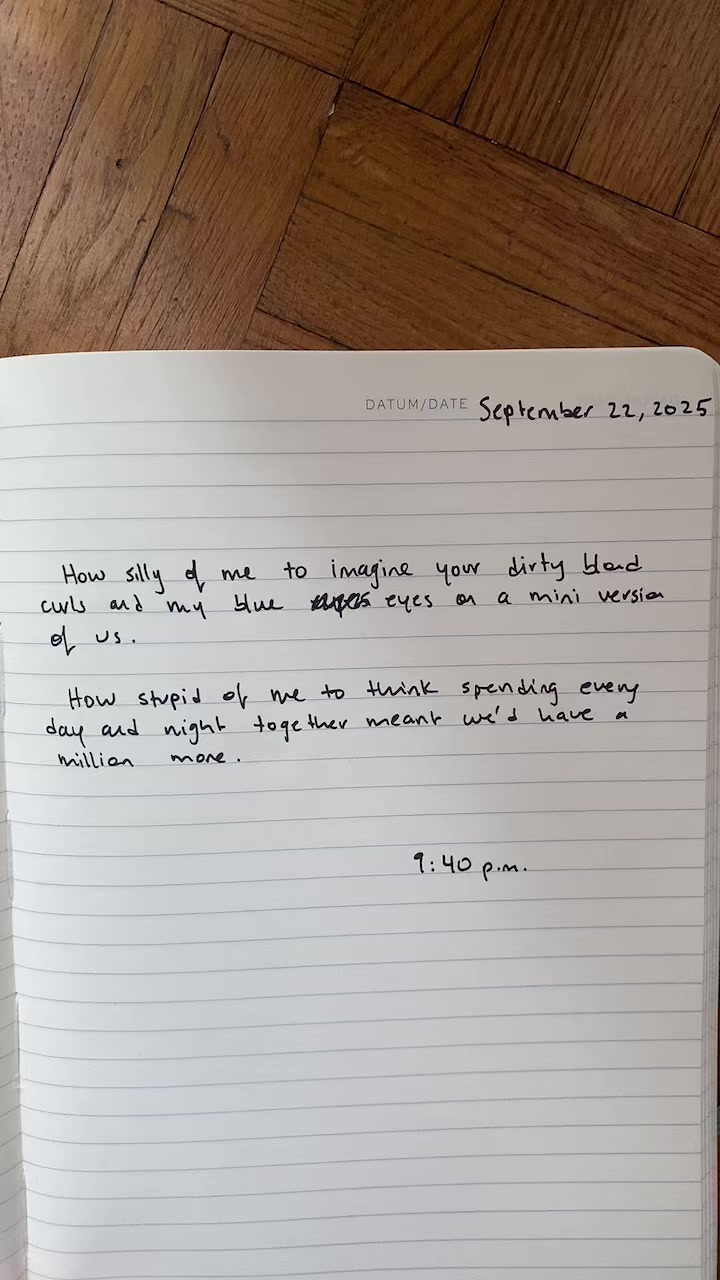 DATUM/DATE September 22, 2025
How silly of me to imagine your dirty blond
curls and my blue eyes on a mini version
of us.
How stupid of me to think spending every
day and night together meant we'd have a
million more.
9:40 p.m.